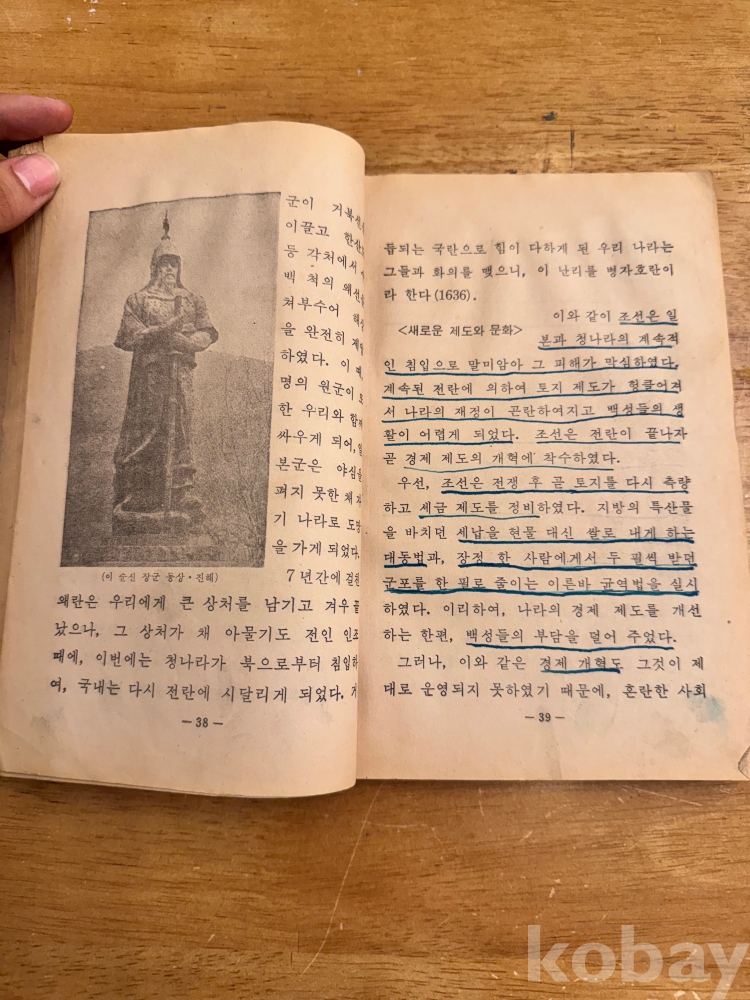 군이 거북선
이끌고 한산
등 각처에서
백 척의 왜선
쳐부수어
을 완전히
하였다. 이
명의 원군이
한 우리와 함께
싸우게 되어, 일
본군은 야심을
펴지 못한 채
기 나라로 도망
을 가게 되었다.
(이 순신 장군 동상·진해)
7년간에 걸친
왜란은 우리에게 큰 상처를 남기고 겨우
났으나, 그 상처가 채 아물기도 전인 인조
때에, 이번에는 청나라가 북으로부터 침입하
여, 국내는 다시 전란에 시달리게 되었다.
— 38 —
듭되는 국란으로 힘이 다하게 된 우리 나라는
그들과 화의를 맺으니, 이 난리를 병자호란이
라 한다(1636).
<새로운 제도와 문화> 이와 같이 조선은 일
본과 청나라의 계속적
인 침입으로 말미암아 그 피해가 막심하였다.
계속된 전란에 의하여 토지 제도가 헝클어져
서 나라의 재정이 곤란하여지고 백성들의 생
활이 어렵게 되었다. 조선은 전란이 끝나자
곧 경제 제도의 개혁에 착수하였다.
우선, 조선은 전쟁 후 곧 토지를 다시 측량
하고 세금 제도를 정비하였다. 지방의 특산물
을 바치던 세납을 현물 대신 쌀로 내게 하는
대동법과, 장정 한 사람에게서 두 필씩 받던
군포를 한 필로 줄이는 이른바 균역법을 실시
하였다. 이리하여, 나라의 경제 제도를 개선
하는 한편, 백성들의 부담을 덜어 주었다.
그러나, 이와 같은 경제 개혁도 그것이 제
대로 운영되지 못하였기 때문에, 혼란한 사회
— 39 —
kobay